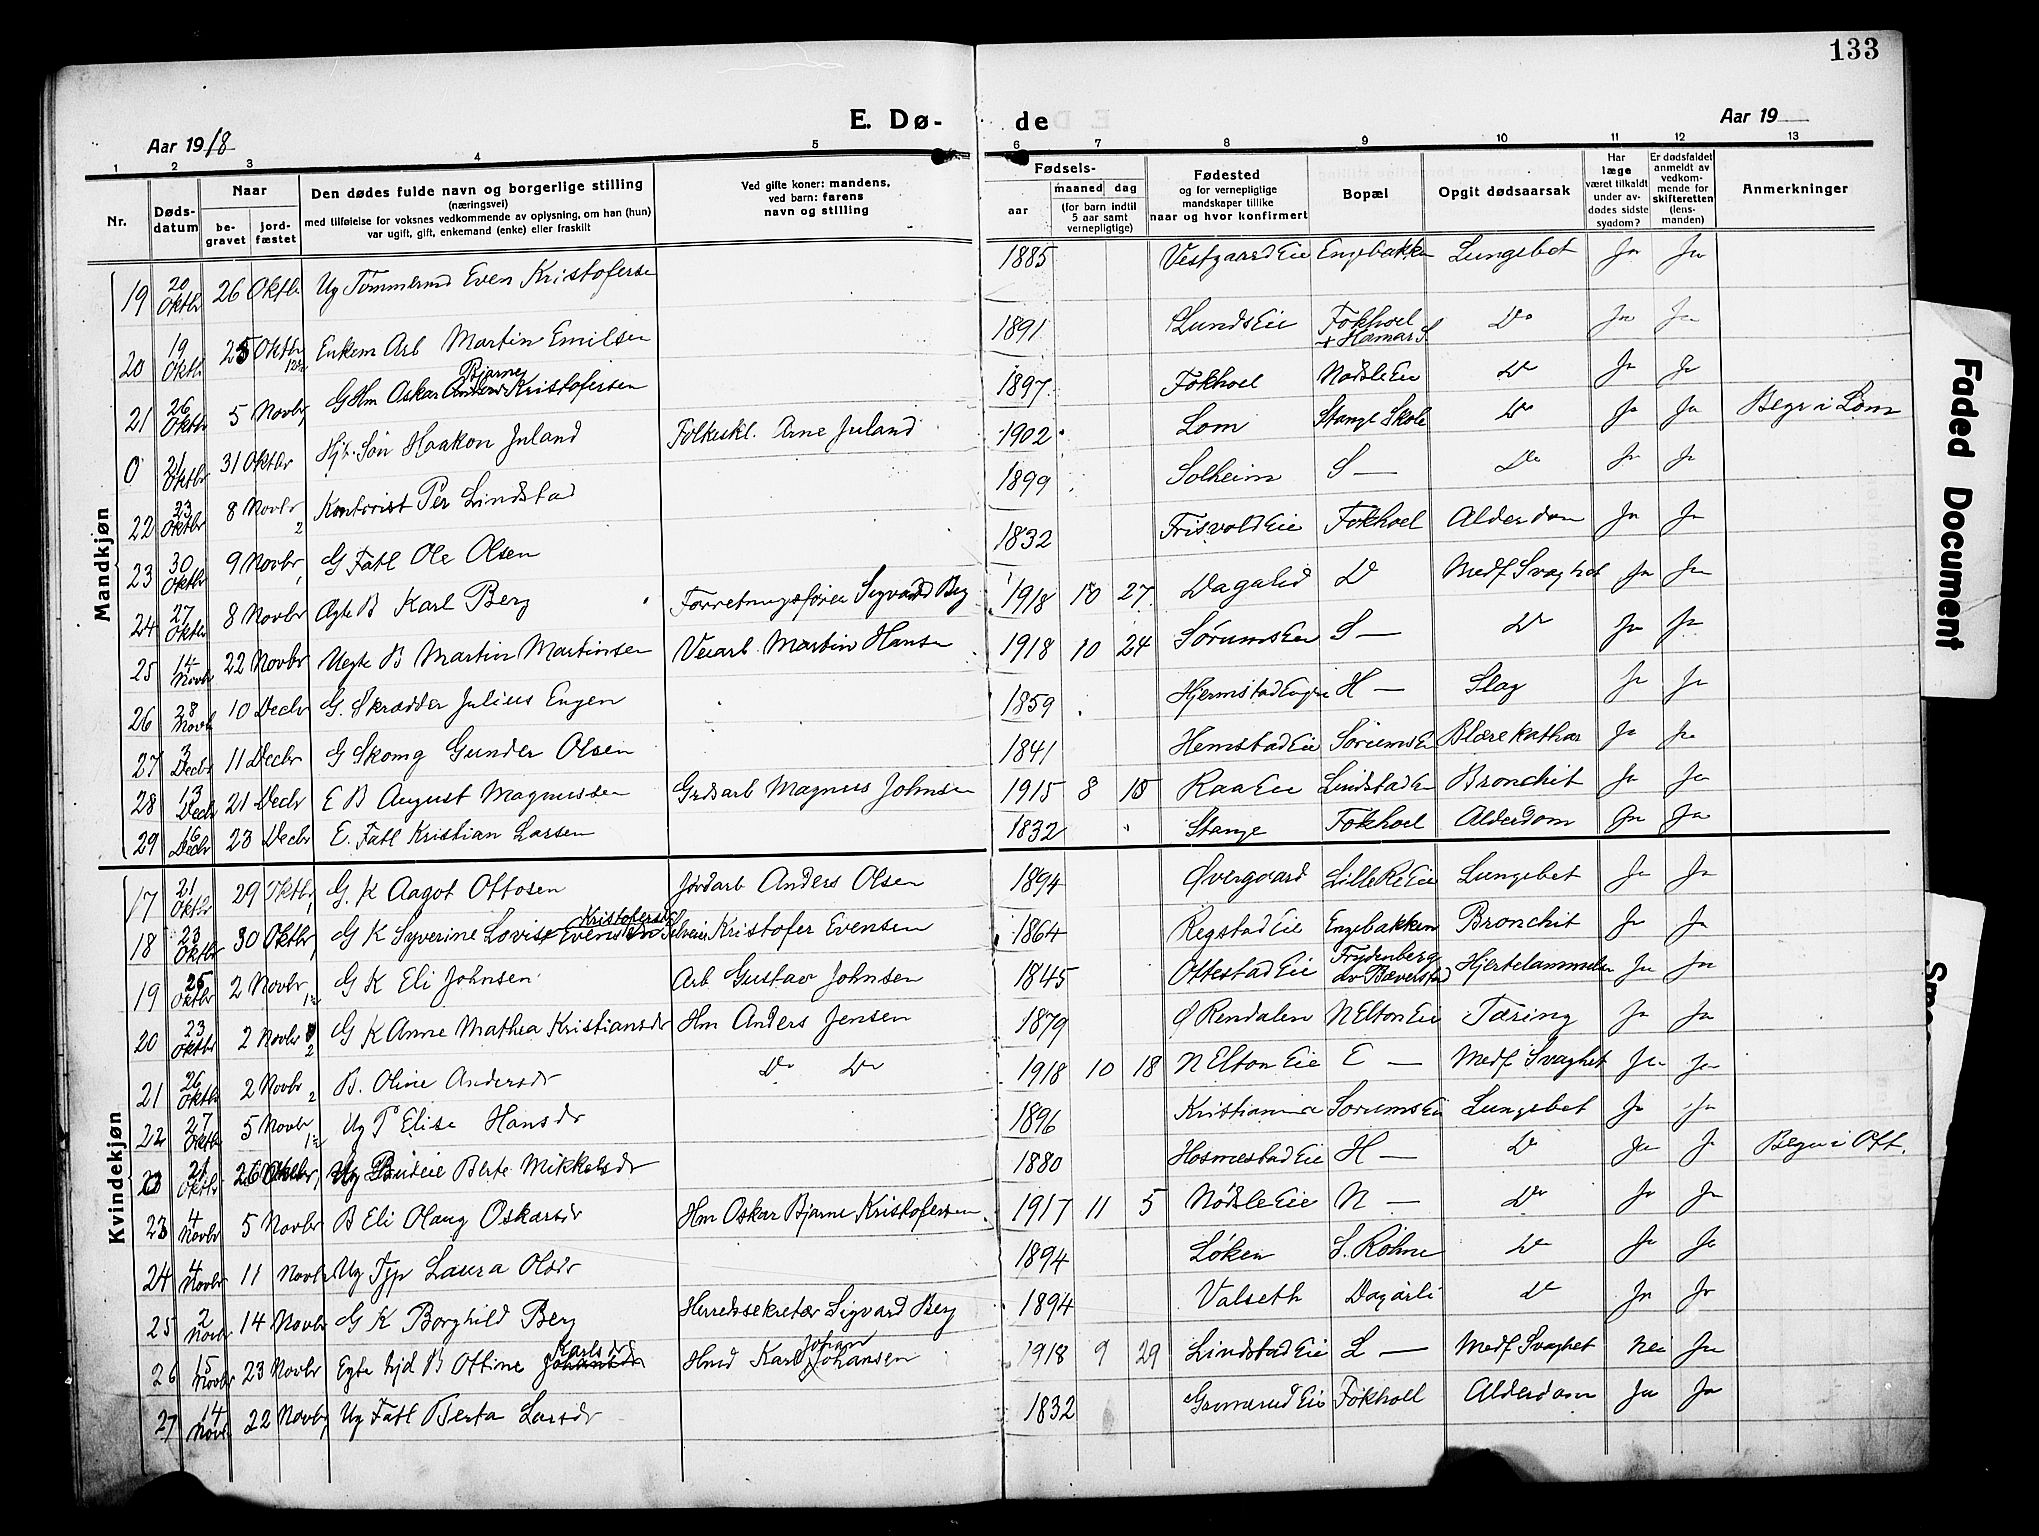 133
E. Dø- de
Aar 1918
Aar 19
1 2 3 4 5 6 7 8 9 10 11 12 13
Nr.
Døds-datum
Naar
be-gravet
jord-fæstet
Den dødes fulde navn og borgerlige stilling
(næringsvei)
med tilføielse for voksnes vedkommende av oplysning, om han (hun)
var ugift, gift, enkemand (enke) eller fraskilt
Ved gifte koner: mandens,
ved barn: farens
navn og stilling
Fødsels-
aar
maaned
dag
(for barn indtil 5 aar samt vernepligtige)
Fødested
og for vernepligtige
mandskaper tillike
naar og hvor konfirmert
Bopæl
Opgit dødsaarsak
Har læge været tilkaldt under av-dødes sidste sygdom?
Er dødsfaldet anmeldt av vedkom-mende for skifteretten (lens-manden)
Anmerkninger
Mandkjøn
19 20 Oktbr 26 Oktbr Ug Tømmermd Even Kristofersen 1885 Vestgaard Eie Engebakken Lungebet Ja Ja
20 19 Oktbr 25 Oktbr Enkem Arb Martin Emilsen 1891 Lunds Eie Fokhoel + Hamar S Do Ja Ja
21 26 Oktbr 5 Novbr G Hm Oskar Bjarne Kristofersen 1897 Fokhoel Nødsle Eie Do Ja Ja
0 21 Oktbr 31 Oktbr Hj. Søn Haakon Juland Folkeskl. Arne Juland 1902 Lom Stange Skole Do Ja Ja Begr i Lom
22 23 Oktbr 8 Novbr 2 Kontorist Per Lindstad 1899 Solheim S — Do Ja Ja
23 30 Oktbr 9 Novbr G Fatl Ole Olsen 1832 Frisvold Eie Fokhoel Alderdom Ja Ja
24 27 Oktbr 8 Novbr Ægte B Karl Berg Forretningsfører Sigvard Berg 1918 10 27 Dagalid Do Medf Svaghet Ja Ja
25 14 Novbr 22 Novbr Uegte B Martin Martinsen Veiarb Martin Hansen 1918 10 24 Sørums Eie S — Do Ja Ja
26 28 Novbr 10 Decbr G. Skrædder Julius Engen 1859 Hjermstad Engen H — Slag Ja Ja
27 3 Decbr 11 Decbr G Skomg Gunder Olsen 1841 Hemstad Eie Sørums E Blærekathar Ja Ja
28 13 Decbr 21 Decbr E B August Magnussen Grdsarb Magnus Johnsen 1915 8 18 Raa Eie Lindstad Eie Bronchit Ja Ja
29 16 Decbr 23 Decbr E. Fatl Kristian Larsen 1832 Stange Fokhoel Alderdom Ja Ja
Kvindekjøn
17 21 Oktbr 29 Oktbr G. K Aagot Ottosen Jordarb Anders Olsen 1894 Øvergaard Lille Re Eie Lungebet Ja Ja
18 23 Oktbr 30 Oktbr G K Syverine Lovise Evensen Kristofersen Selveier Kristofer Evensen 1864 Regstad Eie Engebakken Bronchit Ja Ja
19 25 Oktbr 2 Novbr G K Eli Johnsen Arb Gustav Johnsen 1845 Ottestad Eie Frydenberg Hjertelammelse Ja Ja
20 23 Oktbr 2 Novbr 2 G K Anne Mathea Kristiansdr Hm Anders Jensen 1879 Ø Rendalen N Elton Eie Tæring Ja Ja
21 26 Oktbr 2 Novbr 2 B. Oline Andersdr Do Do 1918 10 18 N Elton Eie E — Medf Svaghet Ja Ja
22 27 Oktbr 5 Novbr Ug P Elise Hansdr 1896 Kristiania Sørums Eie Lungebet Ja Ja
23 21 Oktbr 26 Oktbr Ug Budeie Berte Mikkelsdr 1880 Hosmestad Eie H — Do Ja Ja Begr i Ott.
23 4 Novbr 5 Novbr B Eli Olaug Oskarsdr Hm Oskar Bjarne Kristofersen 1917 11 5 Nødsle Eie N — Do Ja Ja
24 4 Novbr 11 Novbr Ug Tjp Laura Olsdr 1894 Løken S. Rohne Do Ja Ja
25 2 Novbr 14 Novbr G K Borghild Berg Herredssekretær Sigvard Berg 1894 Valseth Dagarli do Ja Ja
26 15 Novbr 23 Novbr Egte hjd B Ottine Johansdr Karlsdr Hmd Karl Johan Johansen 1918 9 29 Lindstad Eie L — Medf Svaghet Nei Ja
27 14 Novbr 22 Novbr Ug Fatl Berta Larsdr 1832 Eie Fokhoel Alderdom Ja Ja
Faded Document